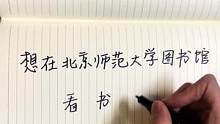 想在北京师范大学图书馆
看书